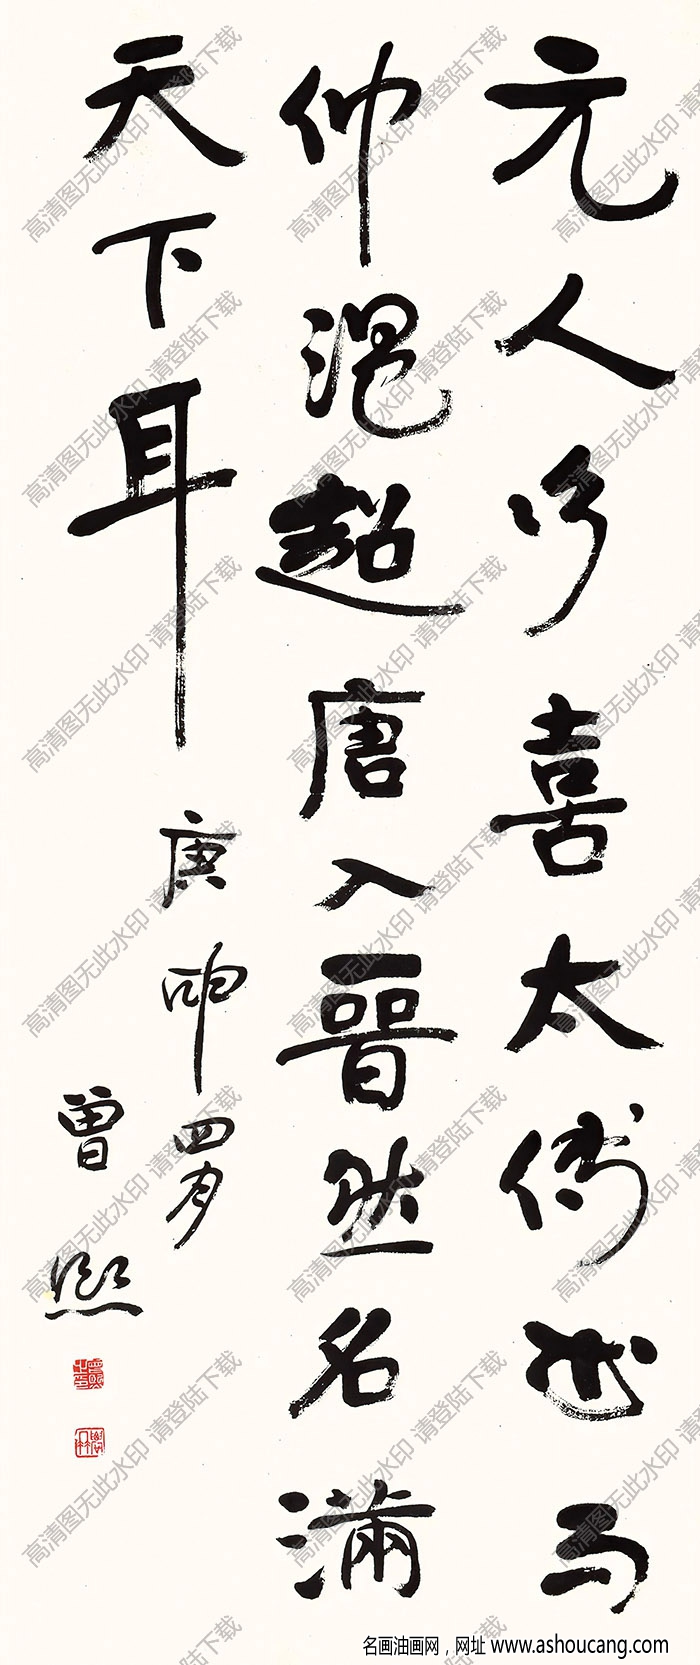 元人喜太傅也
仲温超唐入晋然名满
天下耳
庚申四月
曾熙
高清图无此水印 请登陆下载
名画油画网，网址 www.ashoucang.com